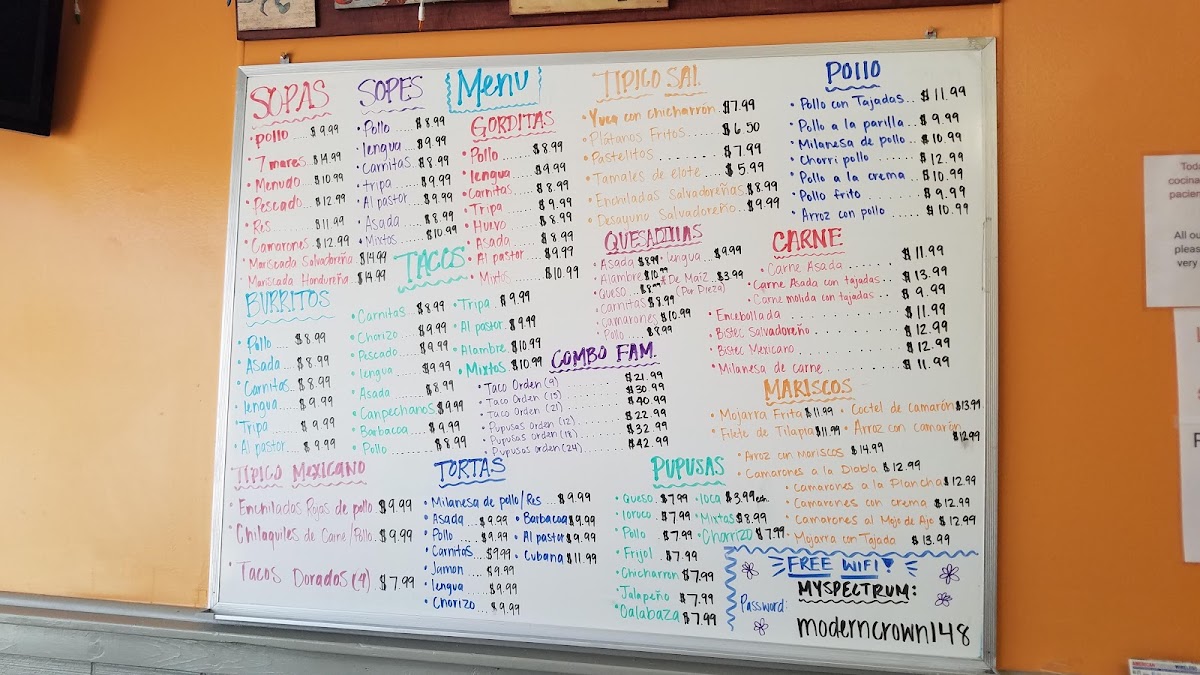 Menu
SOPAS
• pollo .... $9.99
• 7 mares .. $14.99
• Menudo ... $10.99
• Pescado ... $12.99
• Res ..... $11.99
• Camarones .. $12.99
• Mariscada Salvadoreña $14.99
• Mariscada Hondureña $14.99
SOPES
• Pollo ..... $8.99
• lengua .... $9.99
• Carnitas ... $8.99
• tripa .... $9.99
• Al pastor ... $9.99
• Asada .... $8.99
• Mixtos .... $10.99
GORDITAS
• Pollo ....... $8.99
• lengua ..... $9.99
• Carnitas .... $8.99
• Tripa ..... $9.99
• Huevo ..... $8.99
• Asada ..... $8.99
• Al pastor ... $9.99
• Mixtos ..... $10.99
TIPICO SAL.
• Yuca con chicharrón . $7.99
• Plátanos Fritos ...... $6.50
• Pastelitos ........ $7.99
• Tamales de elote .... $5.99
• Enchiladas Salvadoreñas $8.99
• Desayuno Salvadoreño .. $9.99
POllO
• Pollo con Tajadas... $11.99
• Pollo a la parilla ... $9.99
• Milanesa de pollo .. $10.99
• Chorri pollo ...... $12.99
• Pollo a la crema ... $10.99
• Pollo frito ...... $9.99
• Arroz con pollo ..... $10.99
BURRITOS
• Pollo .... $8.99
• Asada .... $8.99
• Carnitas ... $8.99
• lengua .... $9.99
• Tripa .... $9.99
• Al pastor ... $9.99
TACOS
• Carnitas ... $8.99
• Chorizo ... $9.99
• Pescado .... $9.99
• lengua .... $9.99
• Asada .... $8.99
• Canpechanos $9.99
• Barbacoa ... $9.99
• Pollo ..... $8.99
• Tripa . $9.99
• Al pastor . $9.99
• Alambre . $10.99
• Mixtos . $10.99
QUESADILLAS
• Asada $8.99 • lengua .. $9.99
• Alambre $10.99 * De Maiz .. $3.99
• Queso ... $8.99 (Por Pieza)
• Carnitas $8.99
• Camarones .. $10.99
• Pollo .... $8.99
CARNE
• Carne Asada ....... $11.99
• Carne Asada con tajadas .. $13.99
• Carne molida con tajadas .. $9.99
• Encebollada ........ $11.99
• Bistec Salvadoreño ........ $12.99
• Bistec Mexicano ........ $12.99
• Milanesa de carne ........ $11.99
COMBO FAM.
• Taco Orden (9) ....... $21.99
• Taco Orden (15) ....... $30.99
• Taco Orden (21) ....... $40.99
• Pupusas orden (12) ..... $22.99
• Pupusas orden (18) ..... $32.99
• Pupusas orden (24) ..... $42.99
MARISCOS
• Mojarra Frita $11.99 • Coctel de camarón $13.99
• Filete de Tilapia $11.99 • Arroz con camarón $12.99
• Arroz con Mariscos $14.99
• Camarones a la Diabla $12.99
• Camarones a la Plancha $12.99
• Camarones con crema $12.99
• Camarones al Mojo de Ajo $12.99
• Mojarra con Tajada $13.99
TIPICO MEXICANO
• Enchiladas Rojas de pollo $9.99
• Chilaquiles de Carne/Pollo.. $9.99
• Tacos Dorados (4) . $7.99
TORTAS
• Milanesa de pollo/Res ... $9.99
• Asada ... $9.99 • Barbacoa $9.99
• Pollo .... $9.99 • Al pastor $9.99
• Carnitas ... $9.99 • Cubana $11.99
• Jamon .... $9.99
• lengua .... $9.99
• Chorizo ... $9.99
PUPUSAS
• Queso . $7.99 • loca $3.99 ea.
• loroco . $7.99 • Mixtas $8.99
• Pollo . $7.99 • Chorrizo $7.99
• Frijol . $7.99
• Chicharron $7.99
• Jalapeño $7.99
• Calabaza $7.99
FREE WIFI!
MYSPECTRUM:
Password:
moderncrown148
Toda
cocina
pacien
All ou
please
very